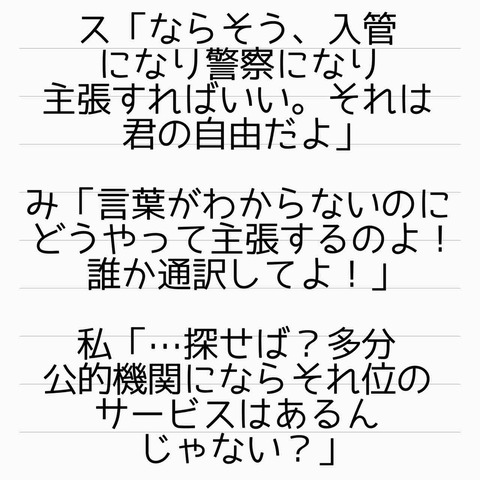 ス「ならそう、入管
になり警察になり
主張すればいい。それは
君の自由だよ」
み「言葉がわからないのに
どうやって主張するのよ！
誰か通訳してよ！」
私「…探せば？多分
公的機関にならそれ位の
サービスはあるん
じゃない？」